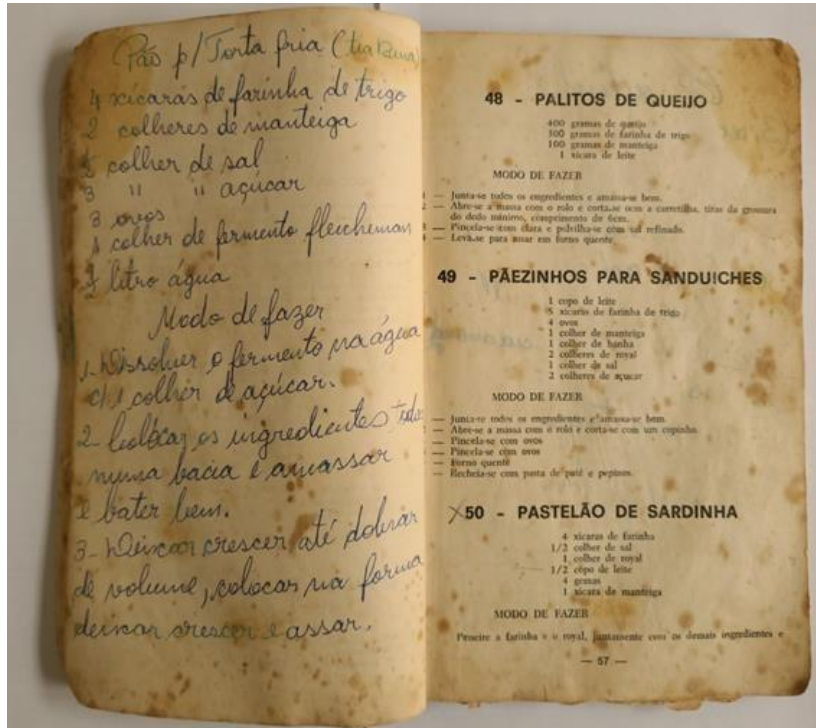 Pão p/ Torta fria (tia
4 xícaras de farinha de trigo
2 colheres de manteiga
½ colher de sal
3 " " açúcar
3 ovos
1 colher de fermento fleicheman
litro água
Modo de fazer
1- Dissolver o fermento na água
c/ 1 colher de açúcar.
2- Colocar os ingredientes todos
numa bacia e amassar
e bater bem.
3- Deixar crescer até dobrar
de volume, colocar na forma
deixar crescer e assar.
48 - PALITOS DE QUEIJO
400 gramas de queijo
300 gramas de farinha de trigo
100 gramas de manteiga
1 xicara de leite
MODO DE FAZER
1 — Junta-se todos os engredientes e amassa-se bem.
2 — Abre-se a massa com o rolo e corta-se com a carretilha, tiras da grossura
do dedo mínimo, comprimento de 6cm.
3 — Pincela-se com clara e polvilha-se com sal refinado.
4 — Leva-se para assar em forno quente
49 - PÃEZINHOS PARA SANDUICHES
1 copo de leite
5 xicaras de farinha de trigo
4 ovos
1 colher de manteiga
1 colher de banha
2 colheres de royal
1 colher de sal
2 colheres de açucar
MODO DE FAZER
— Junta-se todos os engredientes e amassa-se bem
— Abre-se a massa com o rolo e corta-se com um copinho.
— Pincela-se com ovos
— Pincela-se com ovos
— Forno quente
— Recheia-se com pasta de patê e pepinos.
X50 - PASTELÃO DE SARDINHA
4 xicaras de farinha
1/2 colher de sal
1 colher de royal
1/2 copo de leite
4 gemas
1 xicara de manteiga
MODO DE FAZER
Peneire a farinha e o royal, juntamente com os demais ingredientes e
— 57 —